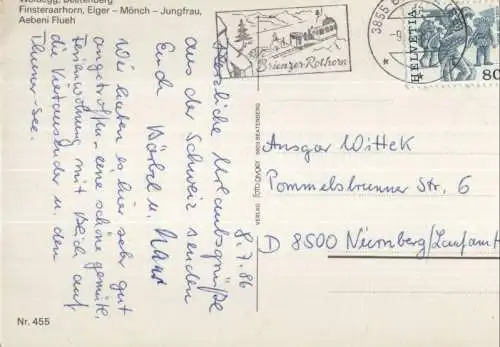 Waldegg, Beatenberg
Finsteraarhorn, Eiger – Mönch – Jungfrau,
Aebeni Flueh
8.7.86
Herzliche Urlaubsgrüße
aus der Schweiz senden
Euch Bärbel u. Hans
Wir haben es hier sehr gut
angetroffen, eine schöne gemütl.
Ferienwohnung mit Blick auf
die Viertausender u. den
Thuner-See.
Nr. 455
VERLAG
3803 BEATENBERG
Brienzer-Rothorn
3855
HELVETIA
80
Ansgar Wittek
Pommelsbrunner Str. 6
D 8500 Nürnberg/Laufamh